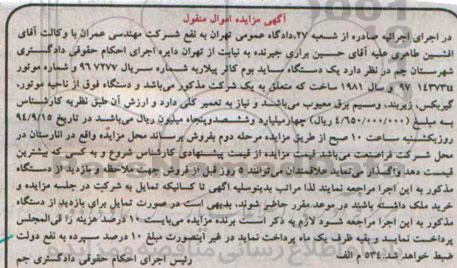 آگهی مزایده اموال منقول
در اجرای اجرائیه صادره از شعبه ۲۷،دادگاه عمومی تهران به نفع شرکت مهندسی عمران با وکالت آقای
افشین طاهری علیه آقای حسین براری جیرنده به نیابت از تهران دایره اجرای احکام حقوقی دادگستری
شهرستان جم در نظر دارد یک دستگاه ساید بوم کاتر پیلاربه شماره سریال ۹۶۷۲۷۷ و شماره موتور
۹۷ ۱۴۳۷۳u وسال ۱۹۸۱ ساخت که متعلق به یک شرکت مذکور می‌باشد و دستگاه فوق از ناحیه موتور،
گیربکس، زیربند، وسیم برق معیوب می‌باشد و نیاز به تعمیر کلی دارد و ارزش آن طبق نظریه کارشناس
به مبلغ (۴/۶۵۰/۰۰۰/۰۰۰ ریال) چهارمیلیارد وششصدوپنجاه میلیون ریال می‌باشد. در تاریخ ۹۴/۹/۱۵
روزیکشنبه ساعت ۱۰ صبح از طریق مزایده مرحله دوم بفروش برساند محل مزایده واقع در انارستان در
محل شرکت فراصنعت می‌باشد قیمت مزایده از قیمت پیشنهادی کارشناس شروع و به کسی که بیشترین
قیمت دهد واگذار می‌نماید علاقمندان می‌توانند ۵ روز قبل از فروش جهت ملاحظه و بازدید از دستگاه
مذکور به این اجرا مراجعه نمایند لذا مراتب بدینوسیله آگهی تا کسانیکه تمایل به شرکت در جلسه مزایده و
خرید ملک داشته باشند در موعد مقرر حاضر شوند، بدیهی است در صورت تمایل برای بازدید از دستگاه
مذکور به این اجرا مراجعه شود لازم به ذکر است برنده مزایده می‌بایست ۱۰ درصد هزینه را فی‌المجلس
پرداخت نمایید و بقیه ظرف یک ماه پرداخت نماید در غیر اینصورت مبلغ ۱۰ درصد سپرده به نفع دولت
ضبط خواهد شد. ۵۳۴ م الف
رئیس اجرای احکام حقوقی دادگستری جم